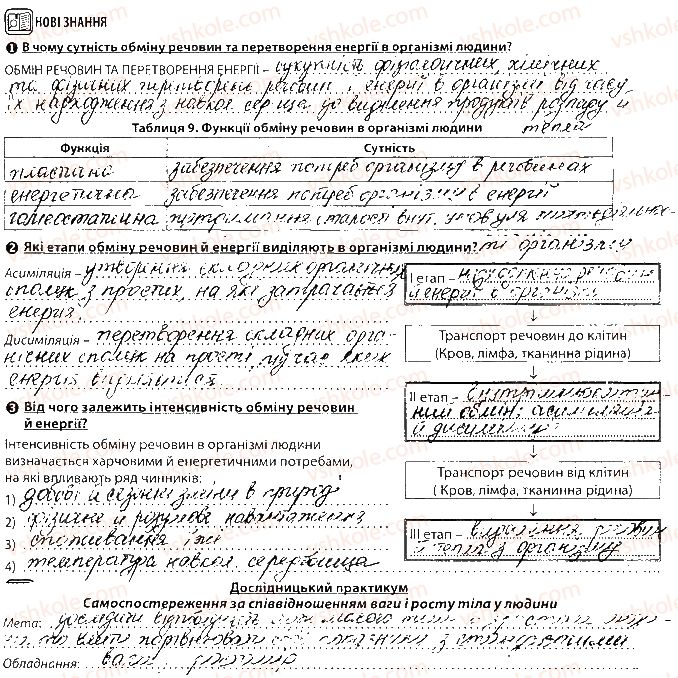 НОВІ ЗНАННЯ
1 В чому сутність обміну речовин та перетворення енергії в організмі людини?
ОБМІН РЕЧОВИН ТА ПЕРЕТВОРЕННЯ ЕНЕРГІЇ – сукупність фізіологічних, хімічних
та фізичних перетворень речовин і енергії в організмі від часу
їх надходження з навкол. середища до виділення продуктів розпаду й
тепла
Таблиця 9. Функції обміну речовин в організмі людини
Функція Сутність
пластична забезпечення потреб організму в речовинах
енергетична забезпечення потреб організму в енергії
гомеостатична підтримання сталості внут. умов для
ті організму
2 Які етапи обміну речовин й енергії виділяють в організмі людини?
Асиміляція – утворення складних органічних
сполук з простих, на які затрачається
енергія.
Дисиміляція – перетворення складних орга-
нічних сполук на прості, під час яких
енергія виділяється
I етап – надходження речовин
й енергії в організм
Транспорт речовин до клітин
(Кров, лімфа, тканинна рідина)
II етап – внутрішньоклітин
ний обмін: асиміляція
й дисиміляція
Транспорт речовин від клітин
( Кров, лімфа, тканинна рідина)
III етап – виділення речовин
й тепла з організму
3 Від чого залежить інтенсивність обміну речовин
й енергії?
Інтенсивність обміну речовин в організмі людини
визначається харчовими й енергетичними потребами,
на які впливають ряд чинників:
1) добові й сезонні зміни в природі
2) фізична й розумова навантаження
3) споживання їжі
4) температура навкол. середовища
Дослідницький практикум
Самоспостереження за співвідношенням ваги і росту тіла у людини
Мета: дослідити відповідність між масою тіла
та вміти порівнювати свої показники з стандартними
Обладнання: ваги, ростомір
vshkole.com